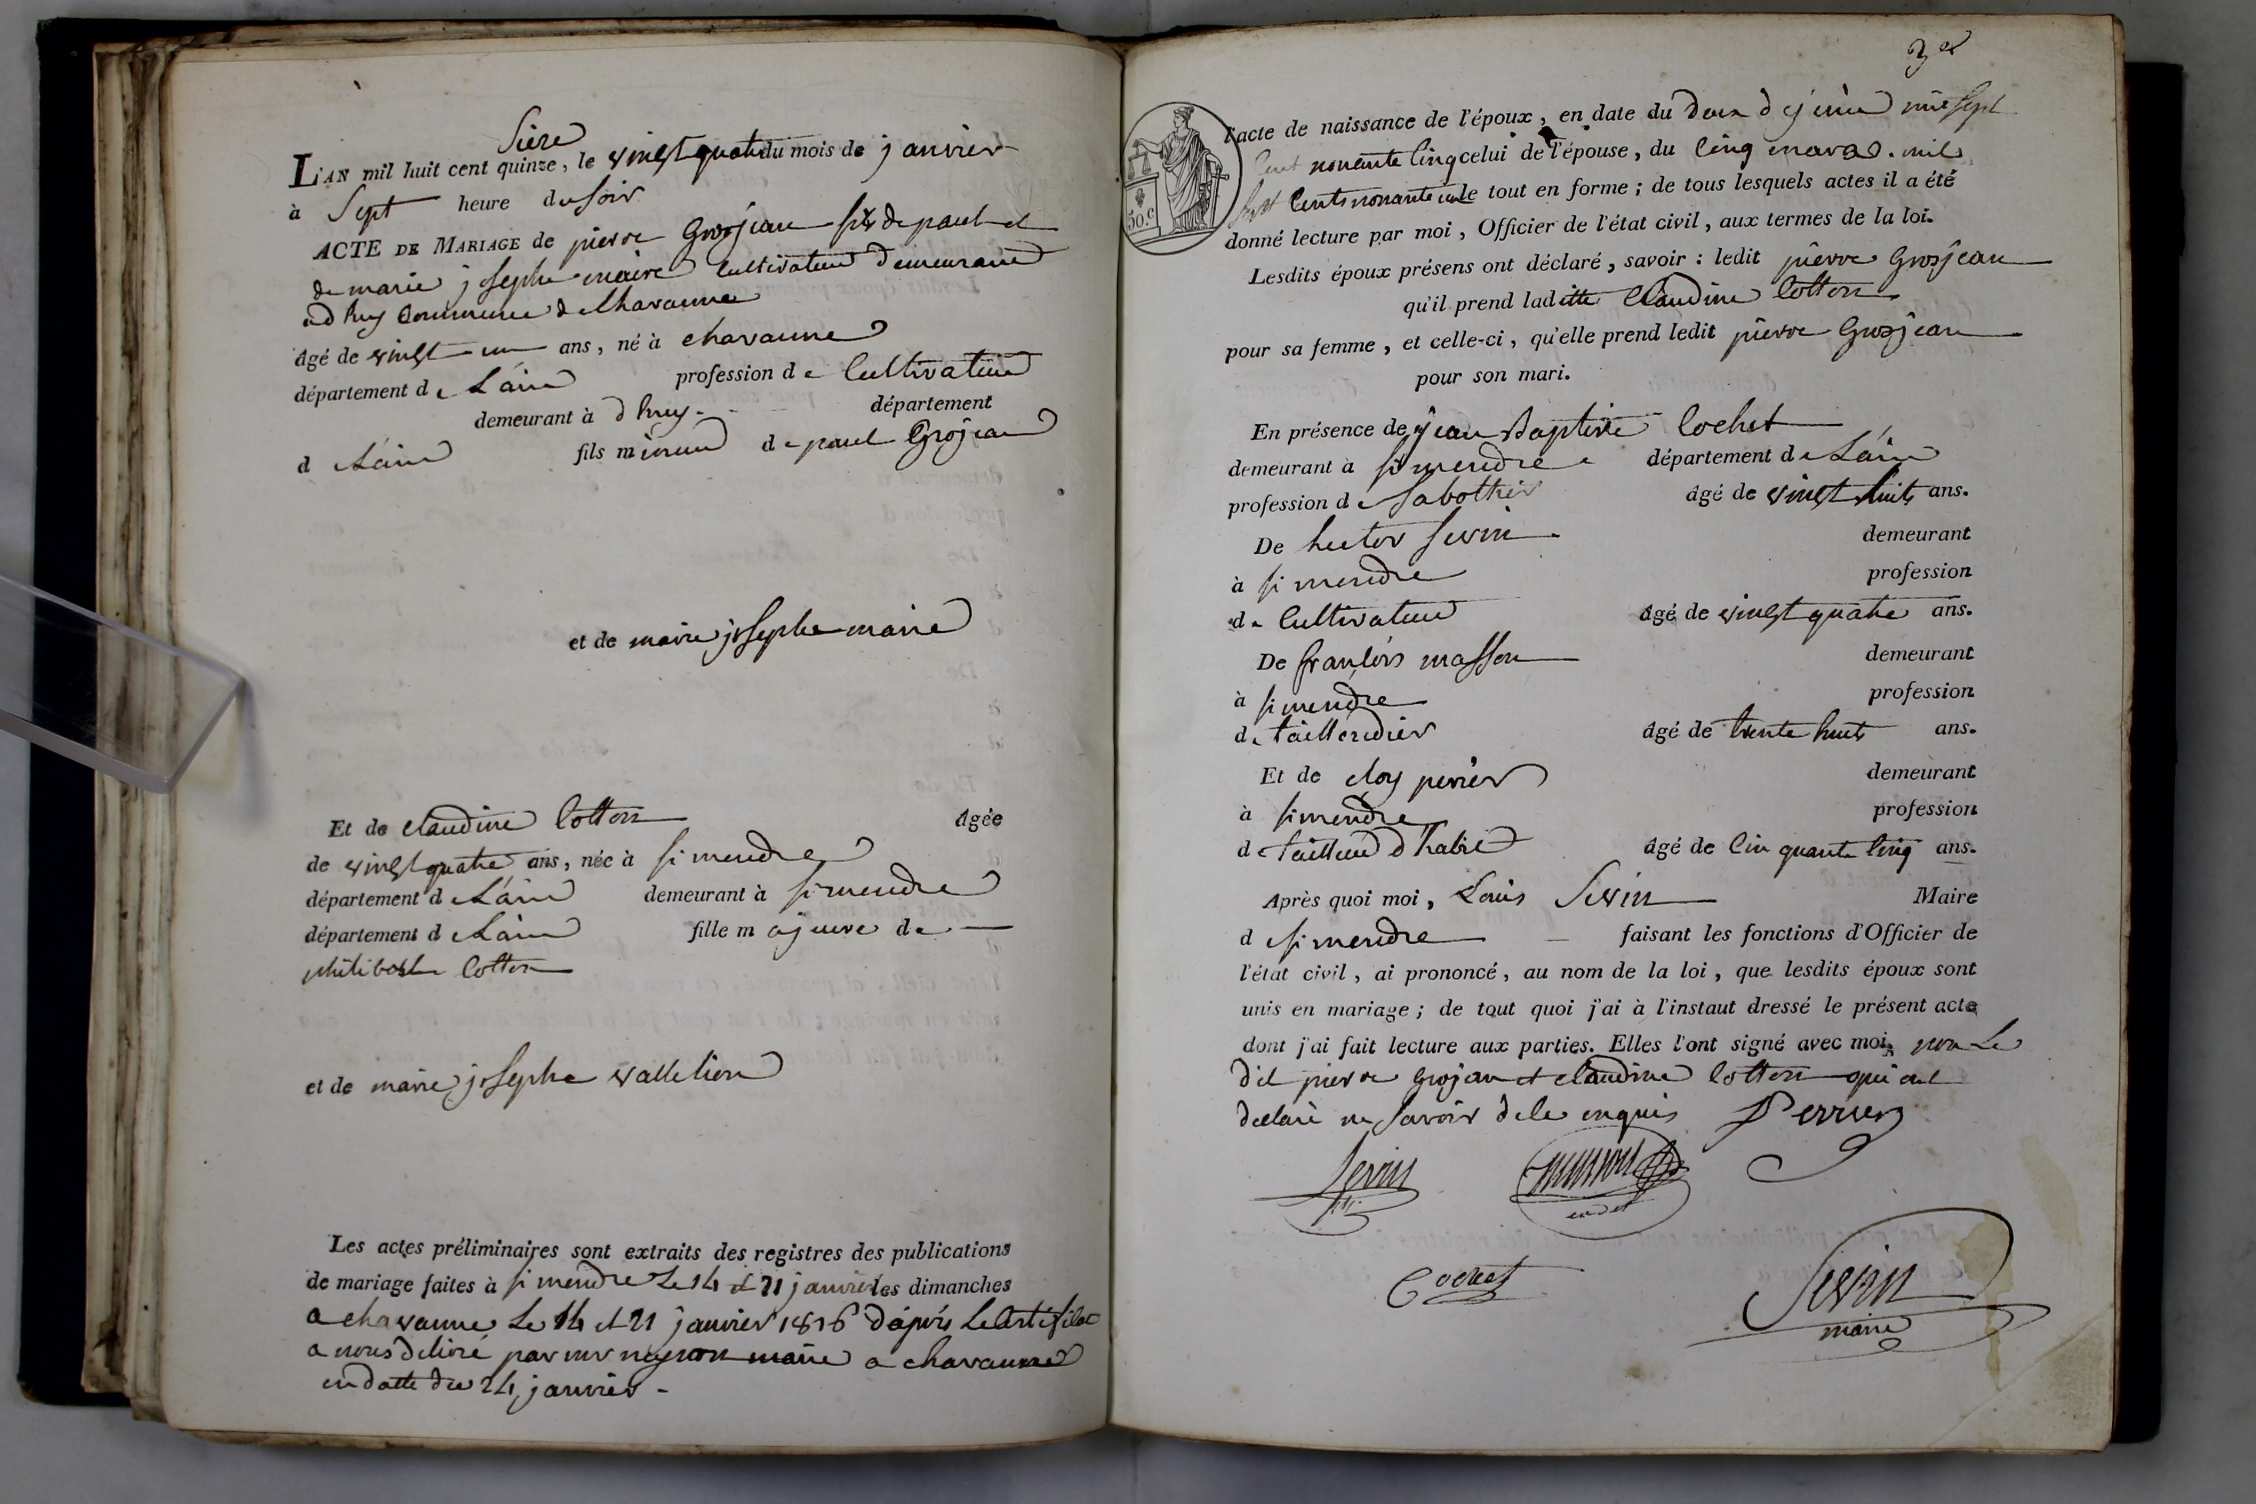 Sieze
L'AN mil huit cent quinze, le vingt quatre du mois de janvier
à Sept heure du soir
ACTE DE MARIAGE de pierre Grosjean fils de paul et
de marie josephe maire cultivateur demeurant
a dhuy commune de Chavanne
âgé de vingt un ans, né à chavanne
département de L'ain profession de Cultivateur
demeurant à dhuy département
d L'ain fils mineur de paul Grojean
et de marie josephe maire
Et de claudine Cotton âgée
de vingt quatre ans, née à simendre
département d L'ain demeurant à simendre
département d L'ain fille majeure de
philiberte Cotton
et de marie josephe vallelion
Les actes préliminaires sont extraits des registres des publications
de mariage faites à simendre Le 14 et 21 janvier les dimanches
a chavanne Le 14 et 21 janvier 1816 d'après le certificat
a nous delivré par mr neyron maire a chavanne
en datte du 24 janvier -
l'acte de naissance de l'époux, en date du mil sept
Cent nonante Cinq celui de l'épouse, du Cinq mars. mil
Sept Cents nonante un le tout en forme; de tous lesquels actes il a été
donné lecture par moi, Officier de l'état civil, aux termes de la loi.
50.c
Lesdits époux présens ont déclaré, savoir: ledit pierre Grosjean
qu'il prend laditte Claudine Cotton
pour sa femme, et celle-ci, qu'elle prend ledit pierre Grosjean
pour son mari.
En présence de jean Baptiste Cochet
demeurant à simendre département de L'ain
profession de Sabothier âgé de vingt huit ans.
De hector Sevin demeurant
à simendre profession
de Cultivateur âgé de vingt quatre ans.
De francois masson demeurant
à simendre profession
de taillendier âgé de trente huit ans.
Et de eloy perier demeurant
à simendre profession
de tailleur d'habit âgé de Cinquante Cinq ans.
Après quoi moi, Louis Sevin Maire
de simendre faisant les fonctions d'Officier de
l'état civil, ai prononcé, au nom de la loi, que lesdits époux sont
unis en mariage; de tout quoi j'ai à l'instant dressé le présent acte
dont j'ai fait lecture aux parties. Elles l'ont signé avec moi, non Le
dit pierre Grojean et claudine Cotton qui ont
declaré ne savoir de ce enquis Perrier
Sevin
Cochet
Sevin
maire